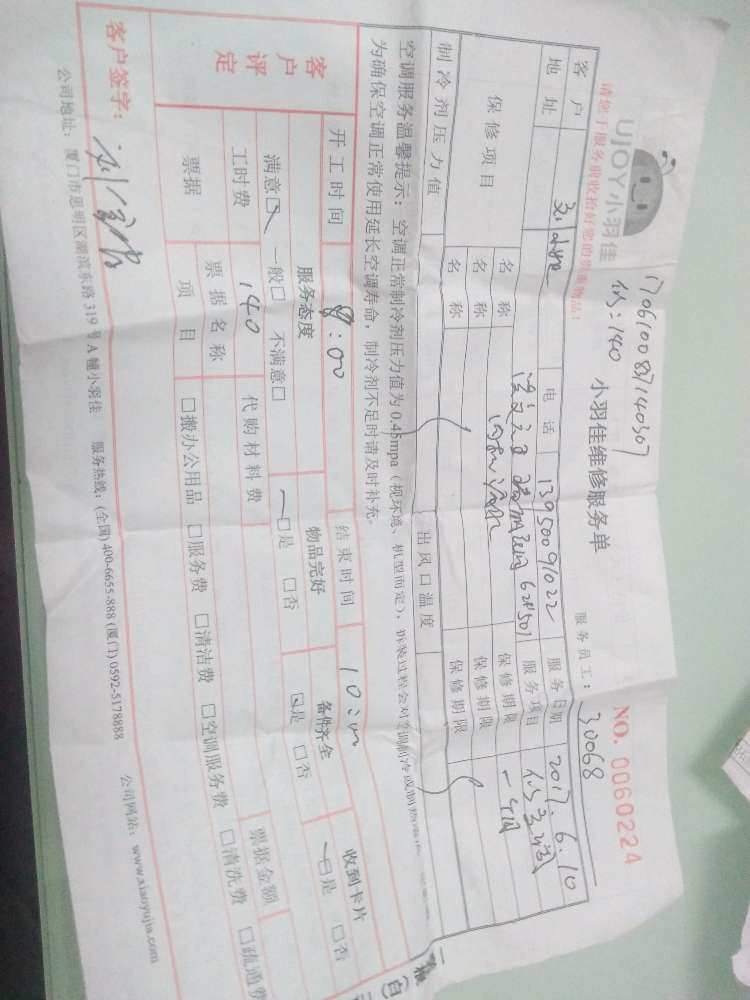 170610087140307
UJOY小羽佳
:140
小羽佳维修服务单
NO. 0060224
请您于服务前收拾好您的贵重物品!
服务员工: 30068
客户
电话 13950091022 服务日期 2017.6.10
地址
628501 服务项目
保修项目 名称 保修期限
名称 保修期限
名称 保修期限
制冷剂压力值 出风口温度
空调服务温馨提示:空调正常制冷剂压力值为0.45mpa(视环境、机型而定),拆装过程会对空调制冷
为确保空调正常使用延长空调寿命,制冷剂不足时请及时补充。
开工时间 8:00 结束时间 10:00
客户评定 服务态度 物品完好 备件齐全 收到卡片
满意□ 一般□ 不满意□ □是 □否 □是 □否 □是 □否
工时费 140 代购材料费 票据金额
票据 票据名称
项目 □搬办公用品 □服务费 □清洁费 □空调服务费 □清洗费 □疏通费
客户签字:
公司地址:厦门市思明区湖滨东路319号A幢小羽佳 服务热线:(全国)400-6655-888 (厦门)0592-5178888 公司网站:www.xiaoyujia.com